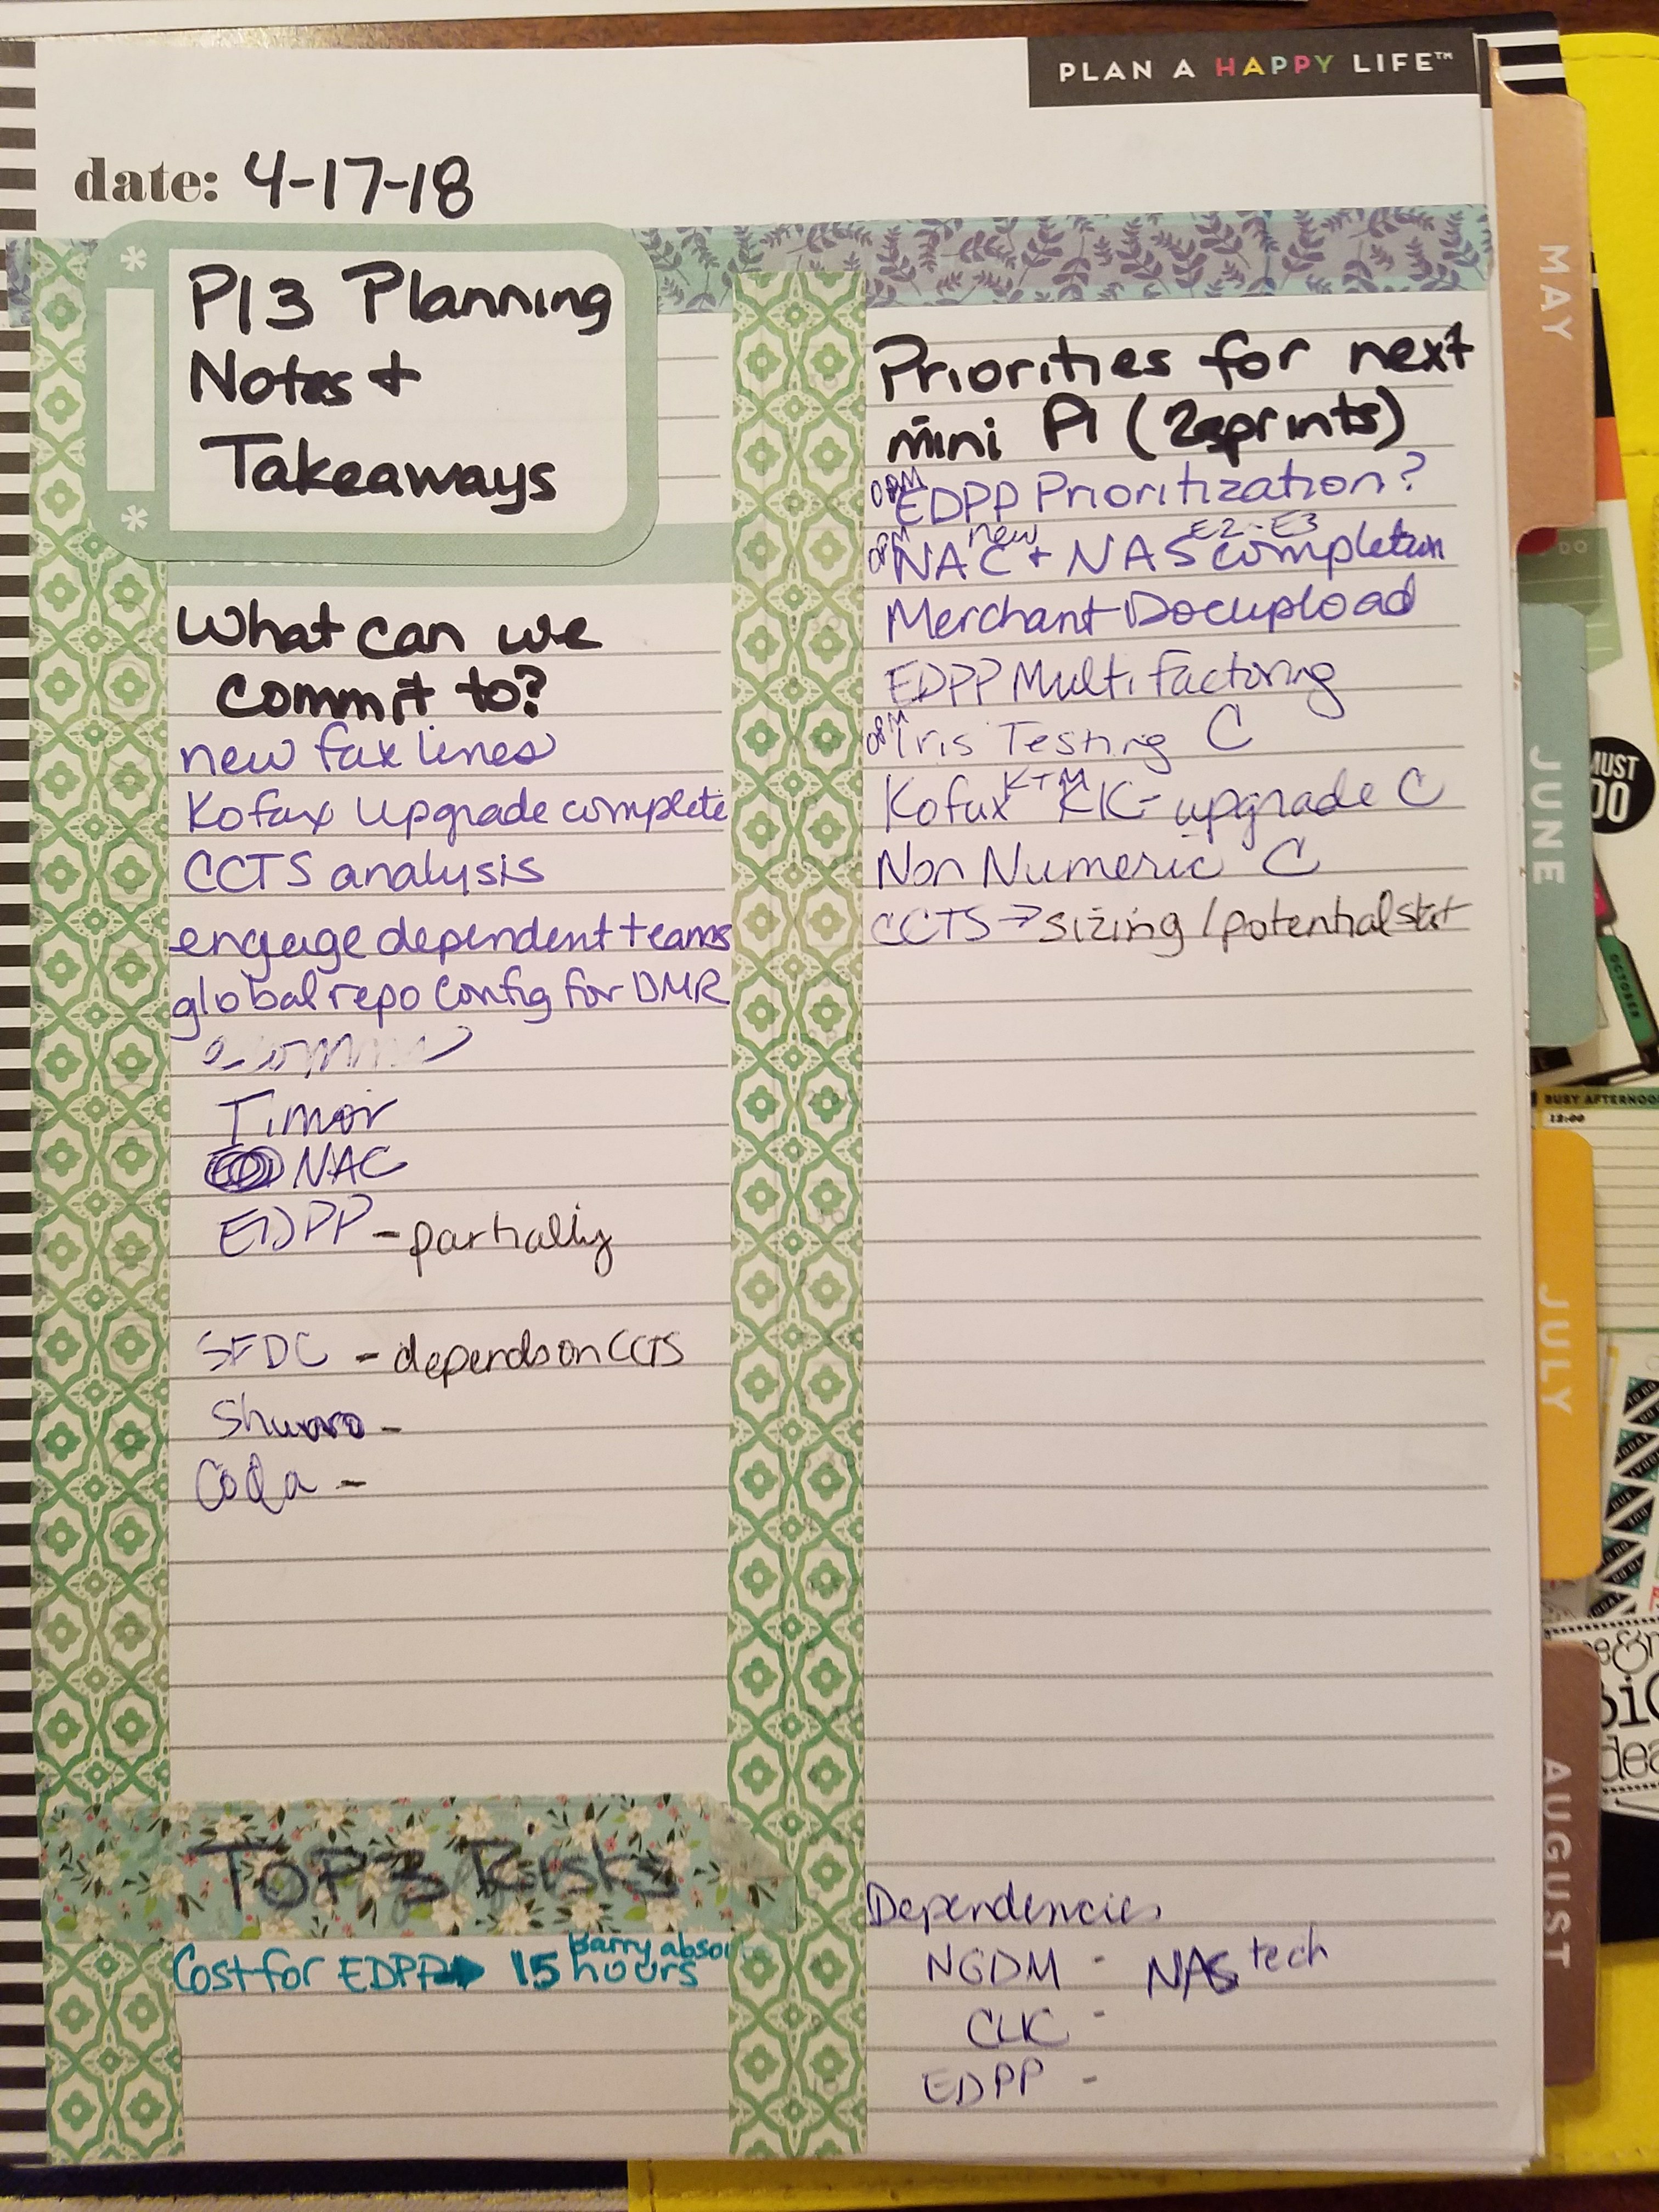 PLAN A HAPPY LIFE™
date: 4-17-18
PI3 Planning
Notes +
Takeaways
What can we
commit to?
new fax lines
Kofax upgrade complete
CCTS analysis
engage dependent teams
global repo config for DMR
Timor
NAC
EDPP - partially
SFDC - depends on CCTS
-
Coda -
TOP 3 Risks
Barry
Cost for EDPP → 15 hours
Priorities for next
mini PI (2 sprints)
OPM
EDPP Prioritization?
OPM new E2-E3
NAC + NAS completion
Merchant Docupload
EDPP Multi factoring
OPM
Iris Testing C
KTM
Kofax KK- upgrade C
Non Numeric C
CCTS → sizing / potential start
Dependencies
NGDM - NAS tech
CLIC -
EDPP -
MAY
JUNE
JULY
AUGUST
DO
MUST
DO
OCTOBER
BUSY AFTERNOON
12:00